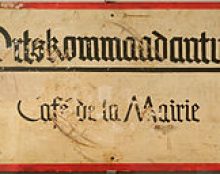 Ortskommandantur
Café de la Mairie